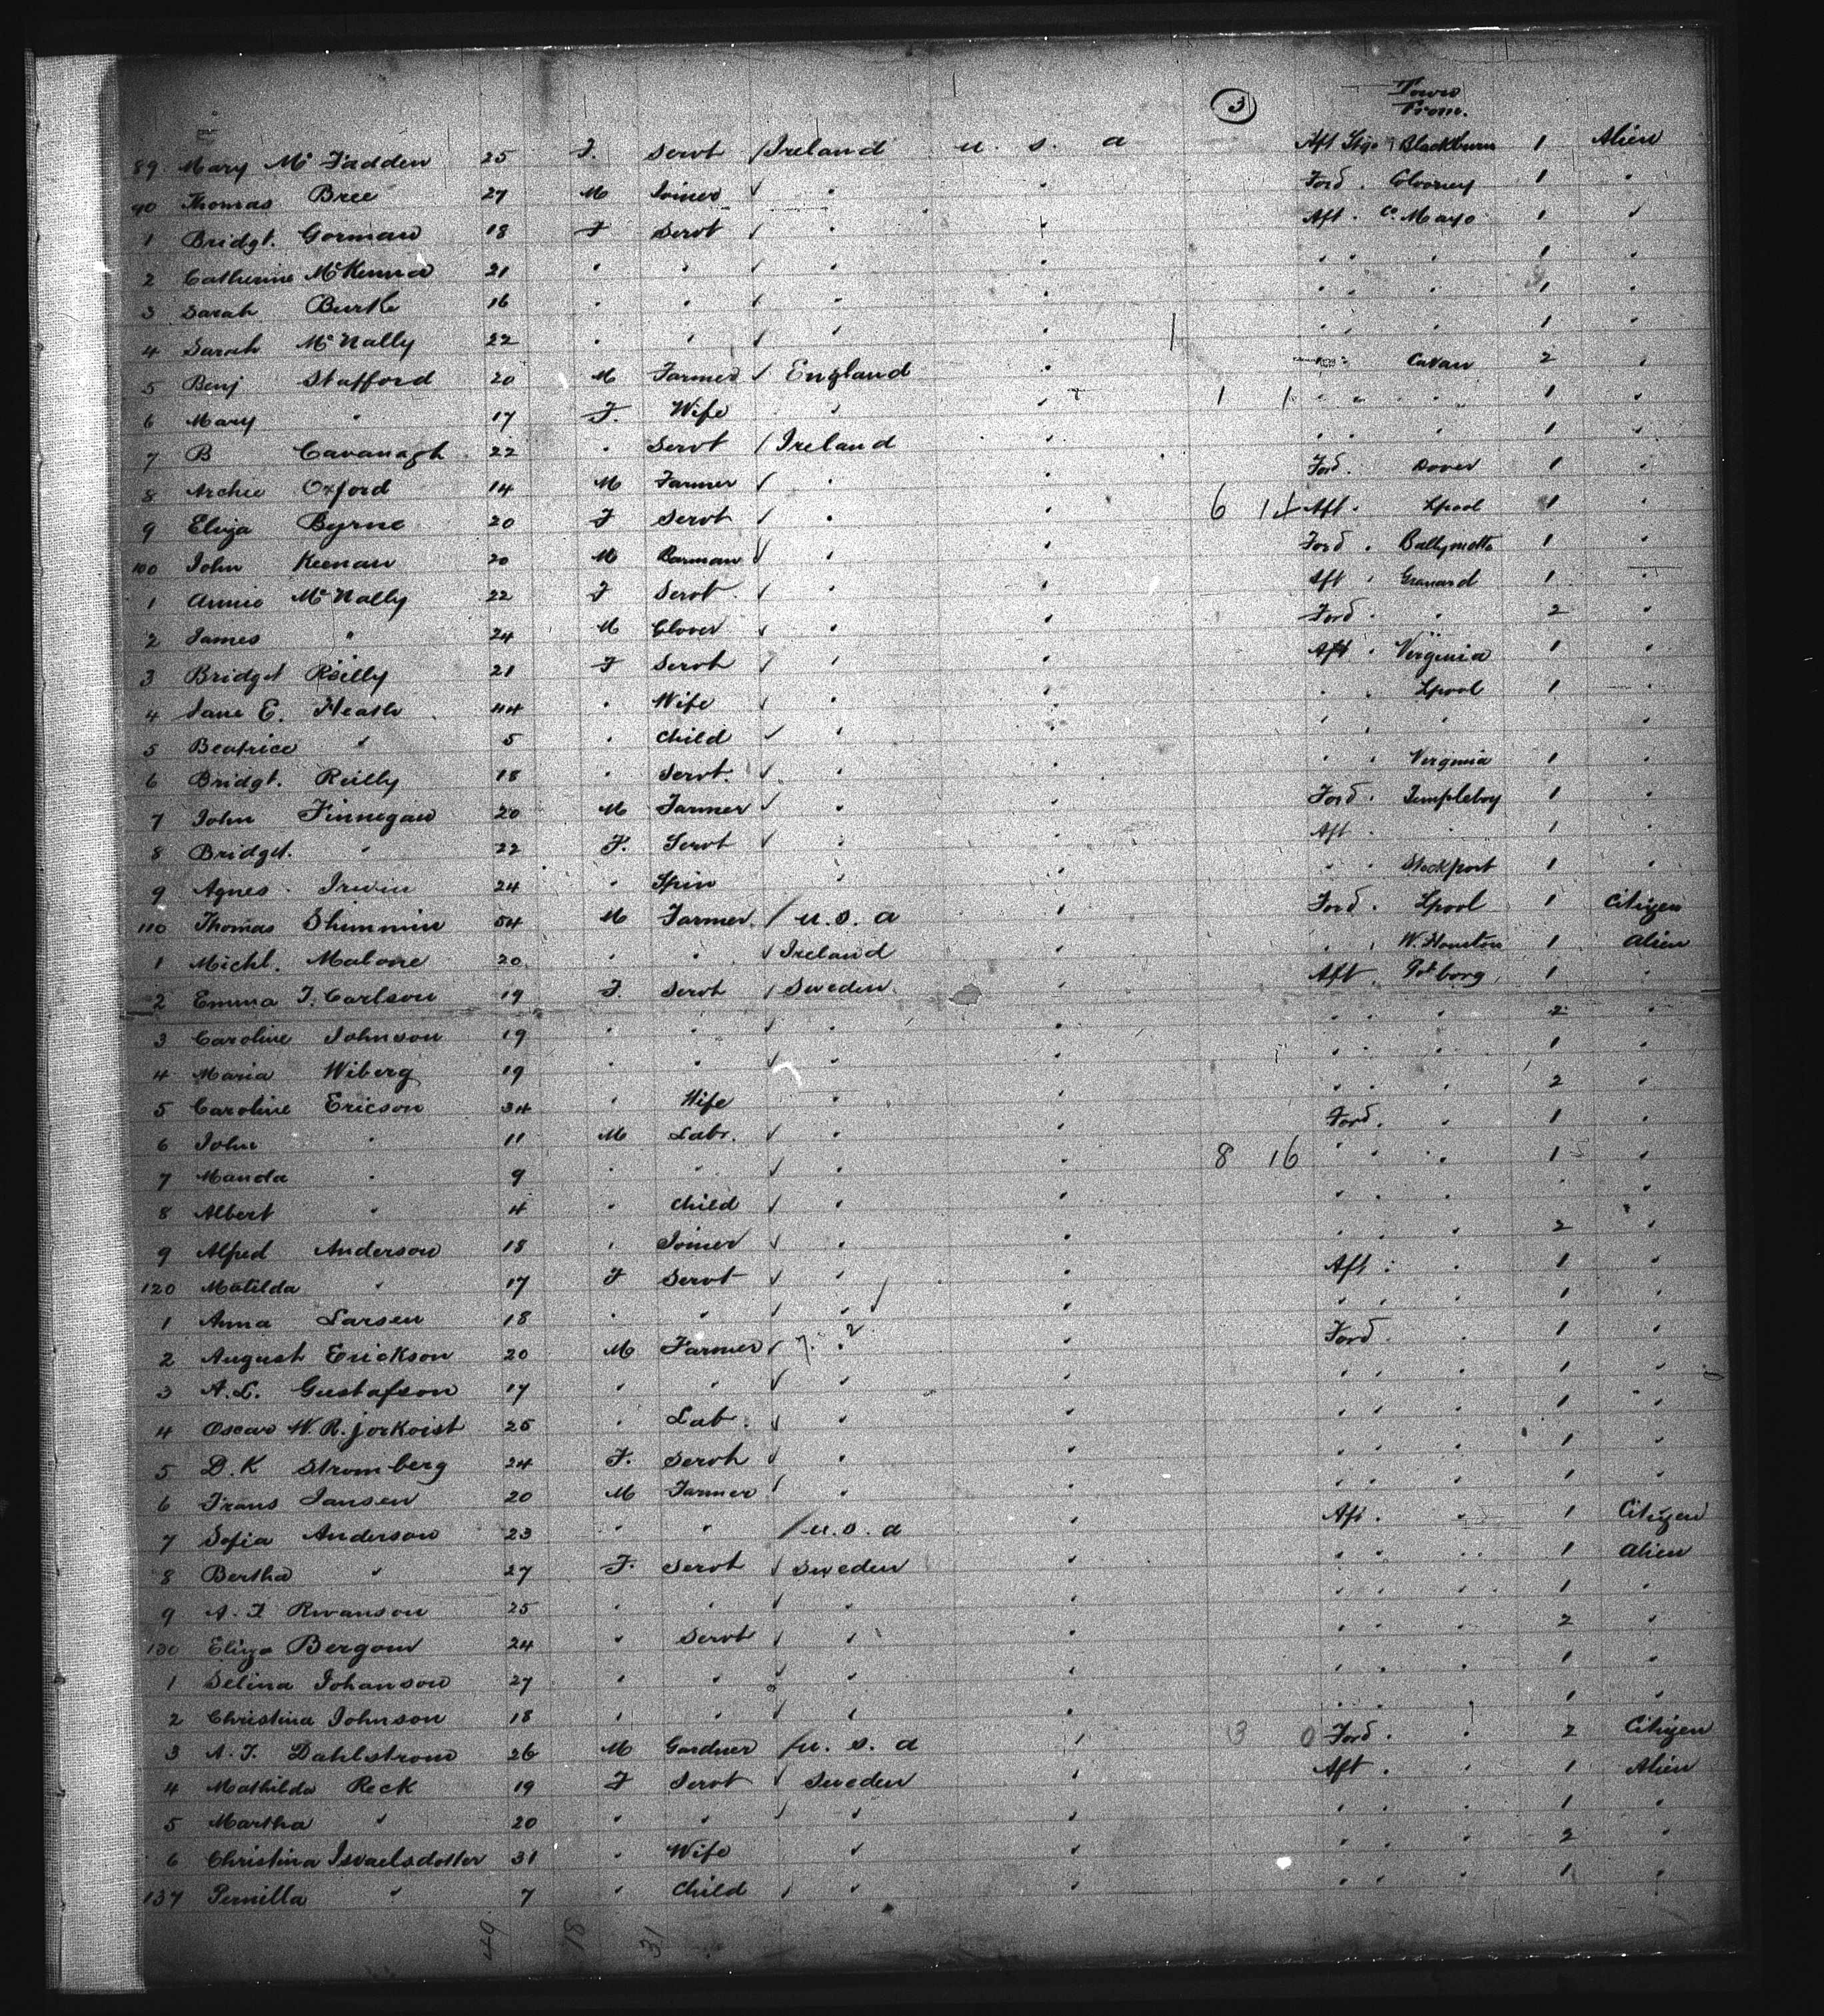 3
Town
From.
89 Mary Mc Fadden 25 F. Servt / Ireland u. s. a Aft Stge Blackburn 1 Alien
90 Thomas Bree 27 M Joiner ✓ " " Ford . Colooney 1 "
1 Bridgt. Gorman 18 F Servt ✓ " " Aft . Co. Mayo 1 "
2 Catherine McKenna 21 " " ✓ " " " " " 1 "
3 Sarah Burke 16 " " ✓ " " " " " 1 "
4 Sarah McNally 22 " " ✓ " " " " " 1 "
5 Benj Stafford 20 M Farmer ✓ England " " " Cavan 2 "
6 Mary " 17 F. Wife " " 1 1 " " " " 1 "
7 B Cavanagh 22 " Servt / Ireland " " " " 1 "
8 Archie Oxford 14 M Farmer ✓ " " Ford . Dover 1 "
9 Eliza Byrne 20 F Servt ✓ " " 6 14 Aft . Lpool 1 "
100 John Keenan 20 M Barman ✓ " " Ford . Ballymotto 1 "
1 Annie McNally 22 F Servt ✓ " " Aft " Granard 1 "
2 James " 24 M Glover ✓ " " Ford . " 2 "
3 Bridget Reilly 21 F Servt ✓ " " Aft . Virginia 1 "
4 Jane E. Heath 44 " Wife ✓ " " " " Lpool 1 "
5 Beatrice " 5 " Child ✓ " " " " " "
6 Bridgt. Reilly 18 " Servt. ✓ " " " " Virginia 1 "
7 John Finnegan 20 M Farmer ✓ " " Ford . Templeboy 1 "
8 Bridget. " 22 F. Servt ✓ " " Aft . " 1 "
9 Agnes Irwin 24 " Spin " " " " Stockport 1 "
110 Thomas Shimmin 54 M Farmer / u. s. a " Ford . Lpool 1 Citizen
1 Michl. Malone 20 " " ✓ Ireland " " " W. Houston 1 Alien
2 Emma J. Carlson 19 F. Servt / Sweden " Aft . Gotborg 1 "
3 Caroline Johnson 19 " " ✓ " " " " " 2 "
4 Maria Wiberg 19 " " ✓ " " " " " 1 "
5 Caroline Ericson 34 " Wife " " " " " 2 "
6 John " 11 M Labr. ✓ " " Ford . " 1 "
7 Manda " 9 " " ✓ " " 8 16 " " " 1 "
8 Albert " 4 " Child ✓ " " " " " " "
9 Alfred Anderson 18 " Joiner ✓ " " " " " 2 "
120 Matilda " 17 F Servt ✓ " " Aft . " 1 "
1 Anna Larsen 18 " " ✓ " " " " " 1 "
2 August Erickson 20 M Farmer ✓ " " Ford . " 1 "
3 A. L. Gustafson 17 " " ✓ " " " " " 1 "
4 Oscar W. R. jorkvist 25 " Lab . ✓ " " " " " 1 "
5 D. K Stromberg 24 F. Servt ✓ " " " " " 1 "
6 Frans Jansen 20 M Farmer ✓ " " " " " 1 "
7 Sofia Anderson 23 " " / u. s. a " Aft . " 1 Citizen
8 Bertha " 27 F. Servt ✓ Sweden " " " " 1 Alien
9 A. J Rwanson 25 " " ✓ " " " " " 1 "
130 Eliza Bergom 24 " Servt ✓ " " " " " 2 "
1 Selina Johanson 27 " " ✓ " " " " " 1 "
2 Christina Johnson 18 " " ✓ " " " " " 1 "
3 A. J. Dahlstrom 26 M Gardner / u. s. a " 3 0 Ford . " 2 Citizen
4 Mathilda Reck 19 F Servt ✓ Sweden " Aft . " 1 Alien
5 Martha " 20 " " ✓ " " " " " 1 "
6 Christina Israelsdotter 31 " Wife " " " " " 2 "
137 Pernilla " 7 " Child ✓ " " " " " 1 "
49 18 31